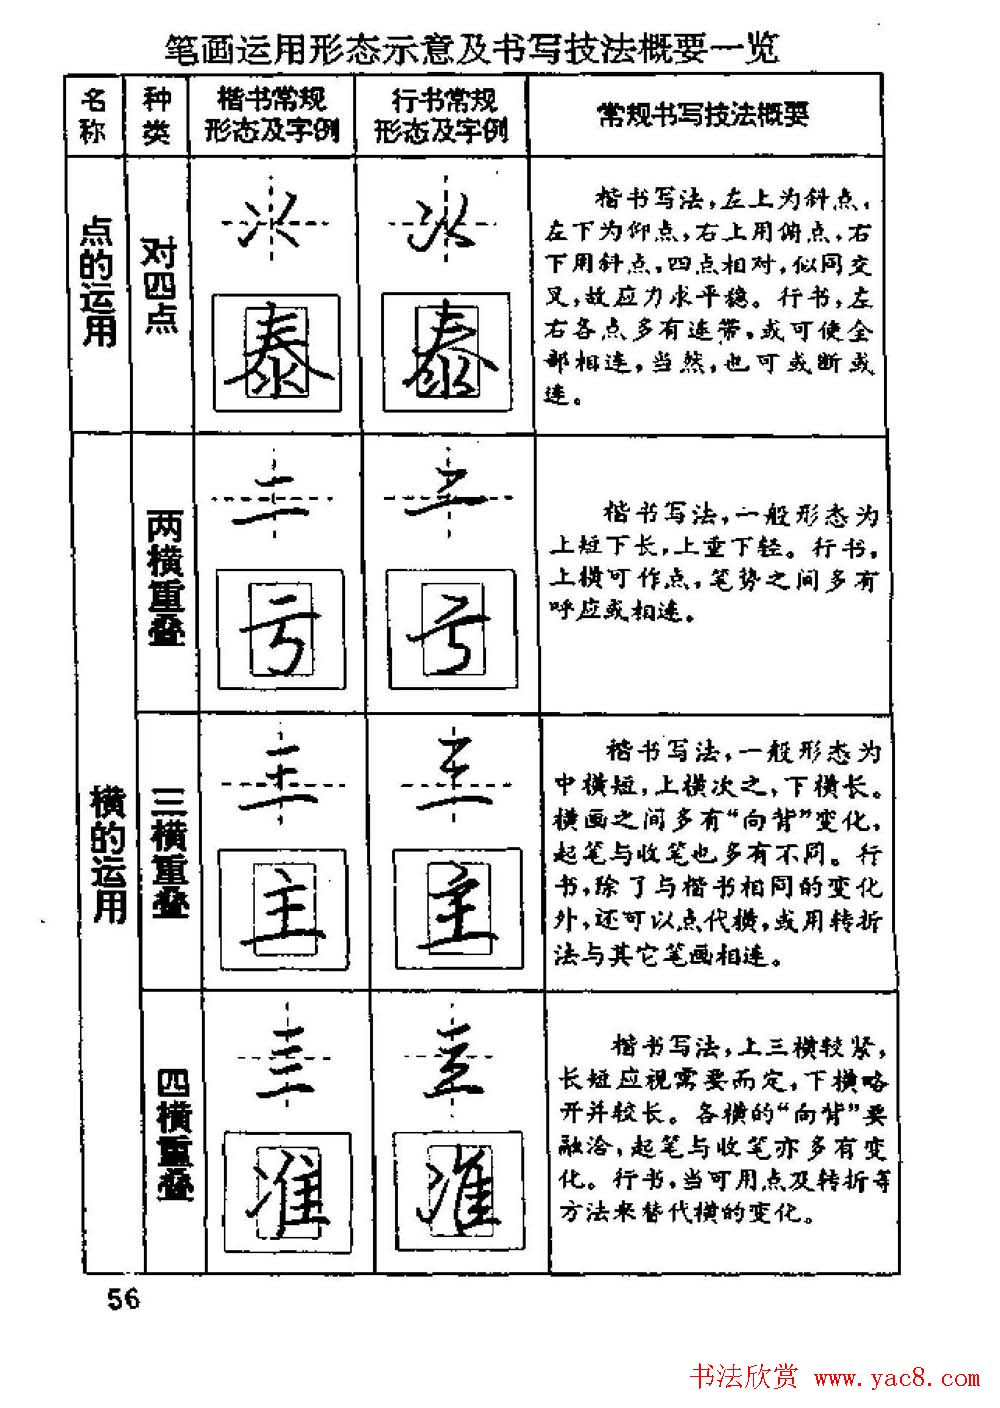 笔画运用形态示意及书写技法概要一览
名称
种类
楷书常规
形态及字例
行书常规
形态及字例
常规书写技法概要
点的运用
对四点
泰
泰
楷书写法,左上为斜点,
左下为仰点,右上用俯点,右
下用斜点,四点相对,似同交
叉,故应力求平稳。行书,左
右各点多有连带,或可使全
部相连,当然,也可或断或
连。
横的运用
两横重叠
亏
亏
楷书写法,一般形态为
上短下长,上重下轻。行书,
上横可作点,笔势之间多有
呼应或相连。
三横重叠
主
主
楷书写法,一般形态为
中横短,上横次之,下横长。
横画之间多有“向背”变化,
起笔与收笔也多有不同。行
书,除了与楷书相同的变化
外,还可以点代横,或用转折
法与其它笔画相连。
四横重叠
准
准
楷书写法,上三横较紧,
长短应视需要而定,下横略
开并较长。各横的“向背”要
融洽,起笔与收笔亦多有变
化。行书,当可用点及转折等
方法来替代横的变化。
56
书法欣赏 www.yac8.com